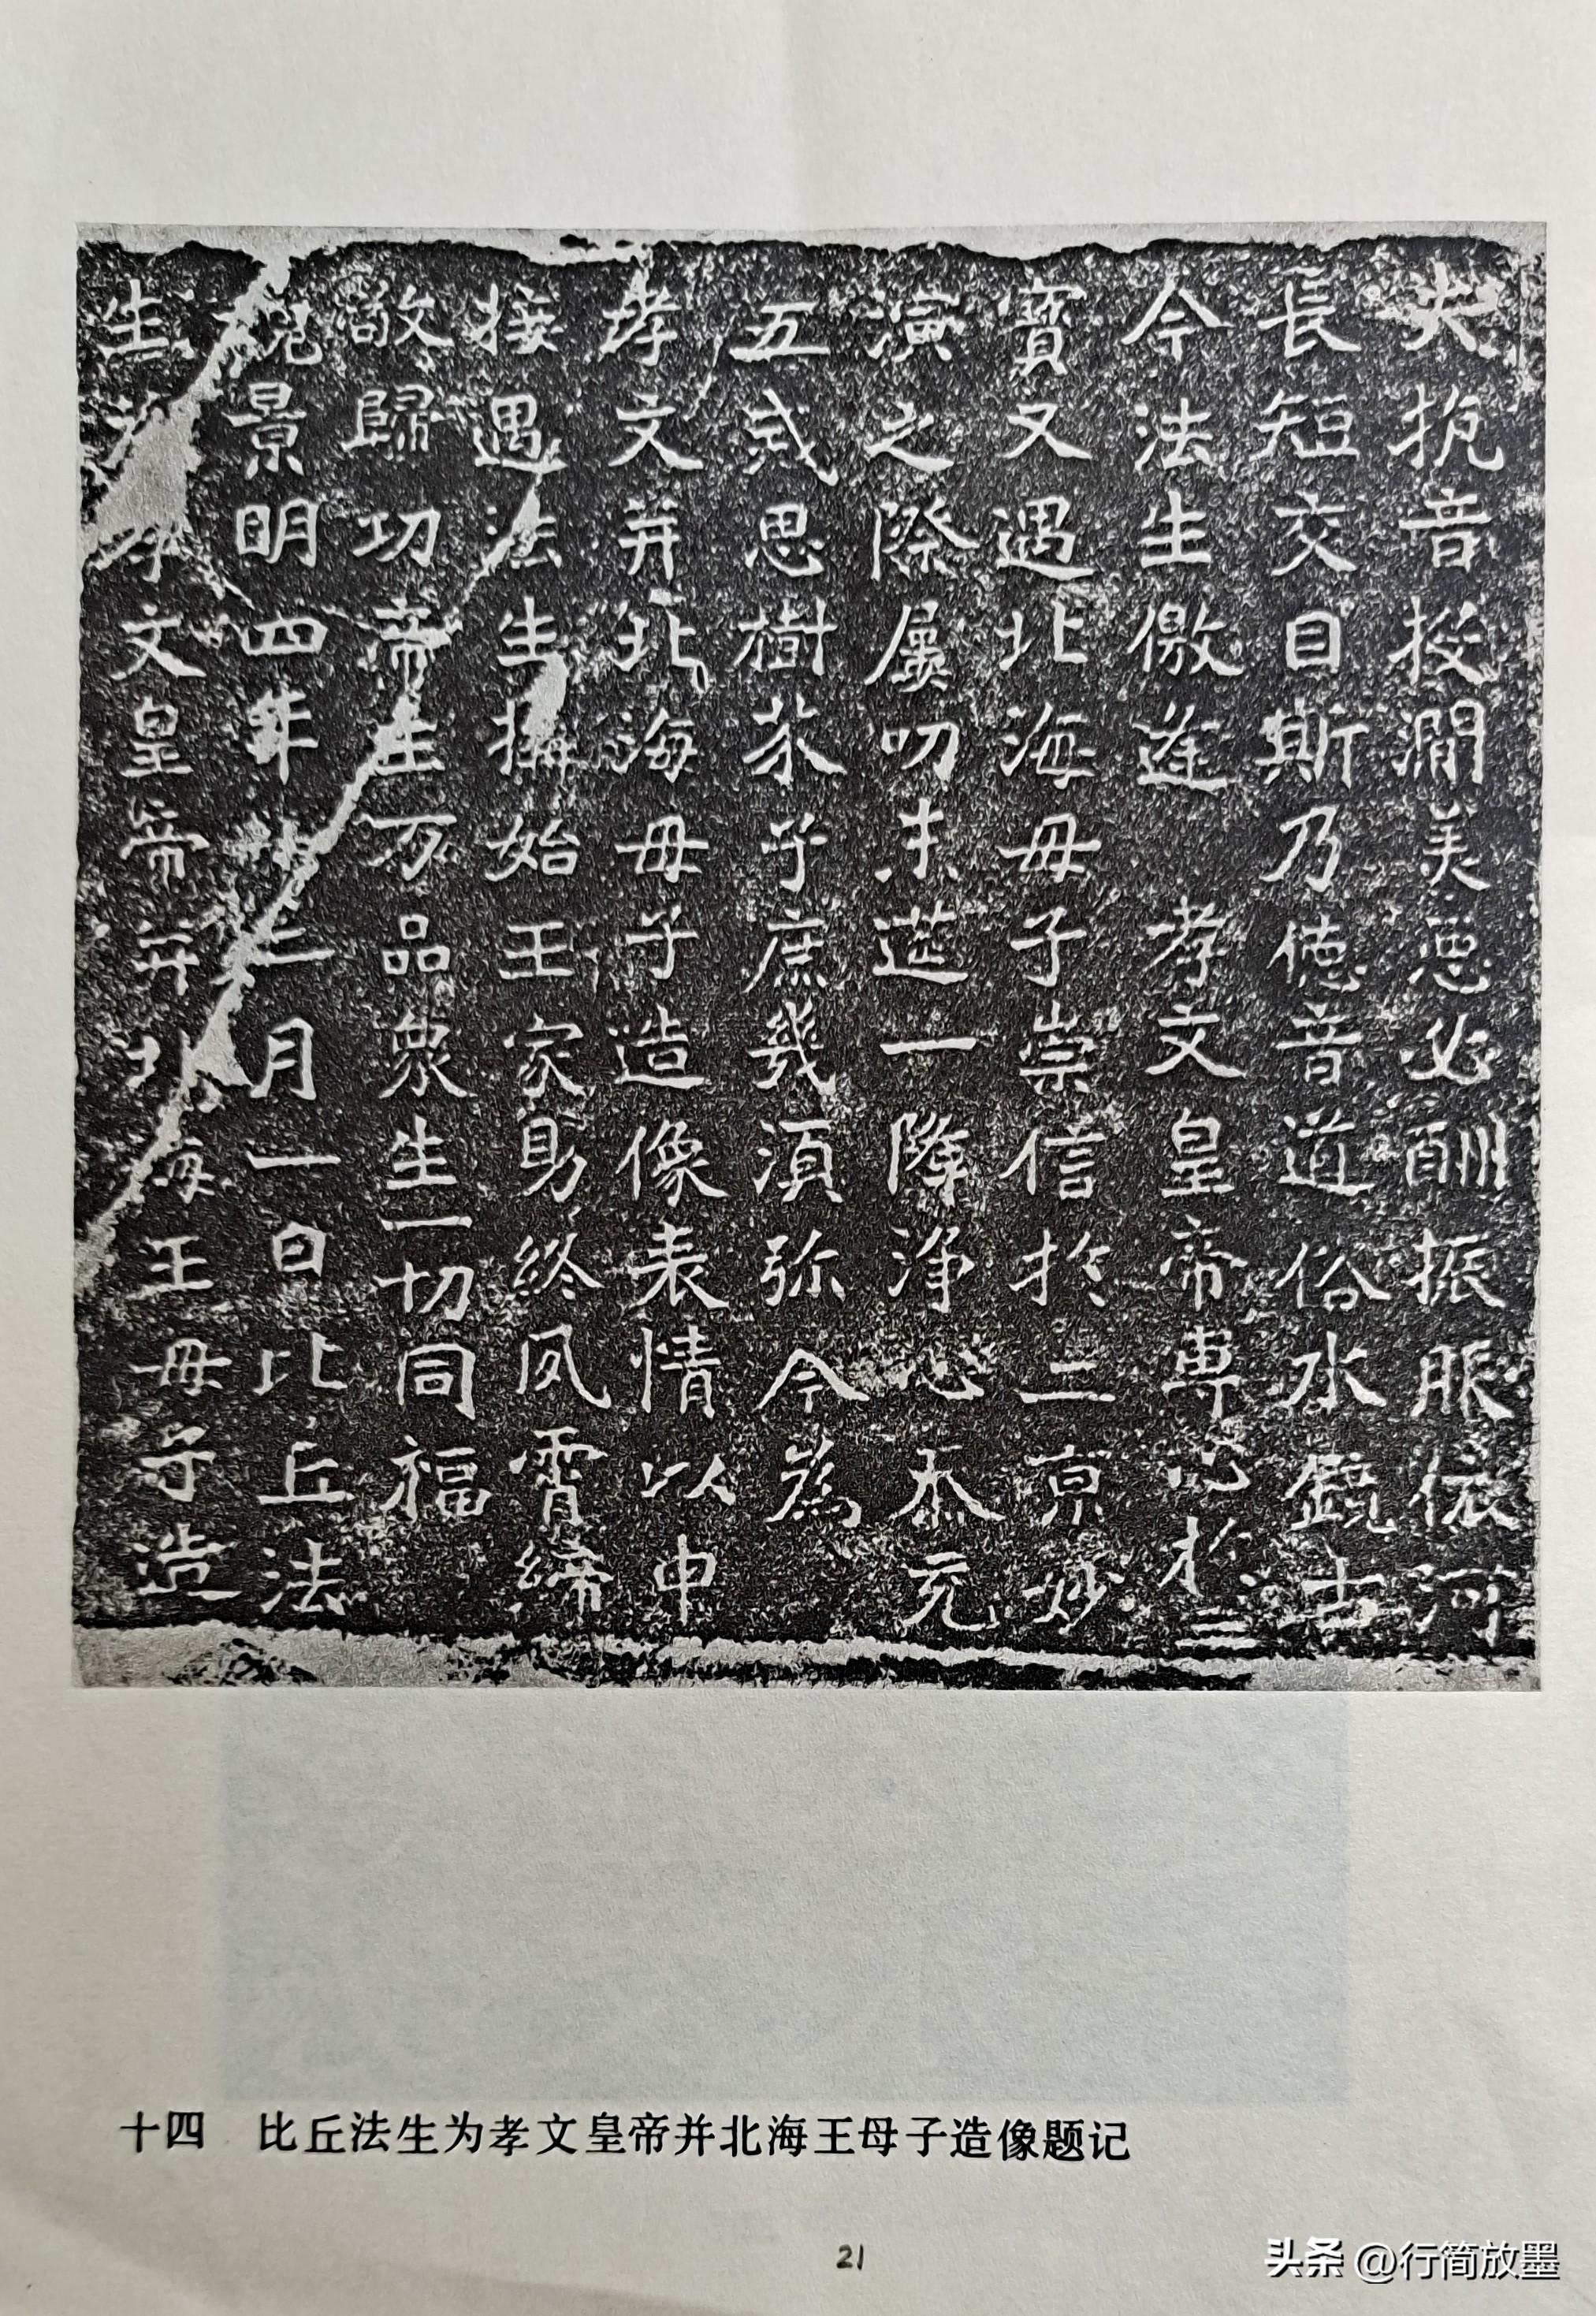 夫抱音投澗美惡必酬振服依河
長短交目斯乃德音道俗水鏡古
今法生儌逢 孝文皇帝専心於三
寶又遇北海母子崇信於二京妙
演之際屢叨末莚一降淨心忝充
五戒思樹芥子庶幾須弥今為
孝文并北海母子造像表情以申
接遇法生構始王家助終夙霄締
敬歸功帝王万品衆生一切同福
魏景明四年十二月一日比丘法
生為孝文皇帝并北海王母子造
十四 比丘法生为孝文皇帝并北海王母子造像题记
21
头条 @行简放墨